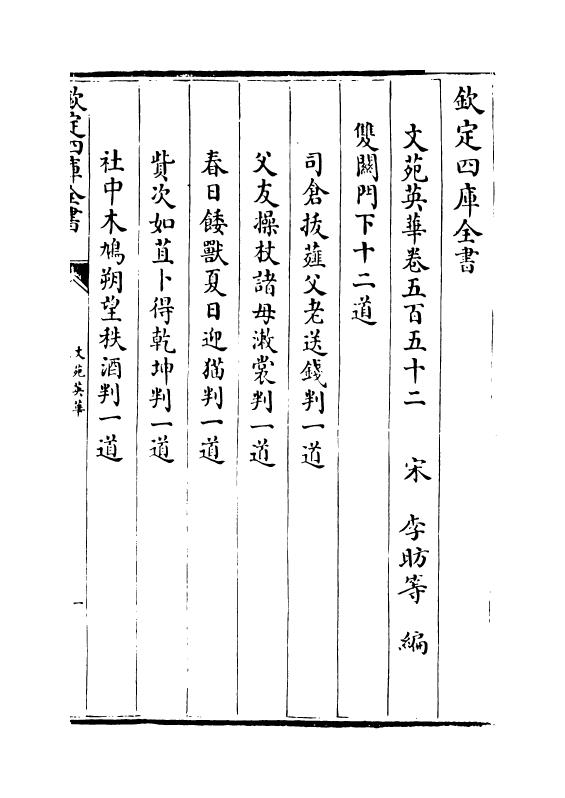 欽定四庫全書
文苑英華卷五百五十二　宋　李昉等　編
雙闕門下十二道
司倉拔薤父老送錢判一道
父友操杖諸母漱裳判一道
春日餧獸夏日迎猫判一道
貲次如苴卜得乾坤判一道
社中木鳩朔望秩酒判一道
欽定四庫全書
文苑英華
一